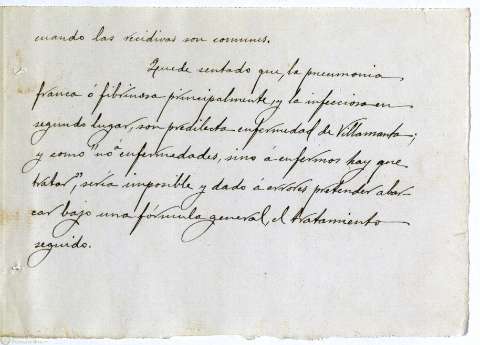 cuando las recidivas son comunes.
Quede sentado que, la pneumonia
franca ó fibrinosa principalmente, y la infecciosa en
segundo lugar, son predilecta enfermedad de Villamanta;
y como "no á enfermedades, sino á enfermos hay que
tratar," sería imposible y dado á errores pretender abar-
car bajo una fórmula general, el tratamiento
seguido.